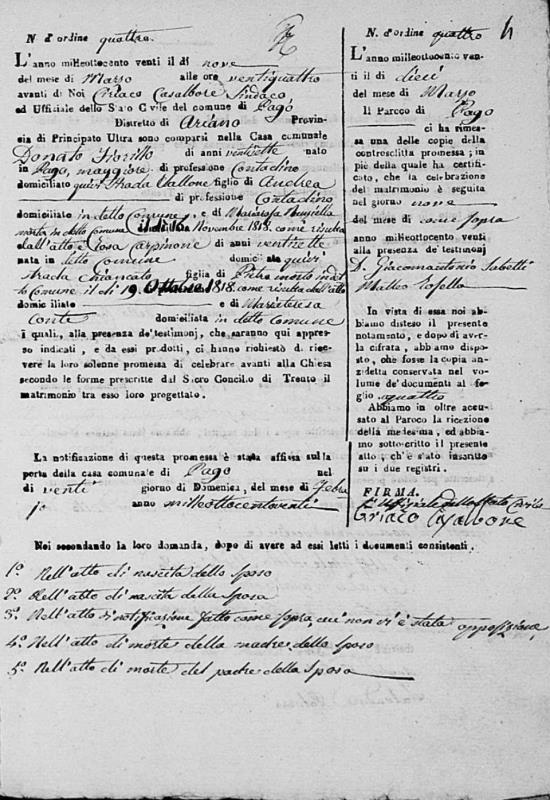 N. d'ordine quattro
L'anno milleottocento venti il di nove
del mese di Marzo alle ore ventiquattro
avanti di Noi Criaco Casalbore Sindaco
ed Uffiziale dello Stato Civile del comune di Pago
Distretto di Ariano Provin-
sia di Principato Ultra sono comparsi nella Casa comunale
Donato Fiorillo di anni ventisette nato
in Pago, maggiore di professione Contadino
domiciliato quivi strada Vallone figlio di Andrea
di professione Contadino
domiciliato in detto Comune, e di
morta in detto Comune il dì 16 Novembre 1819. come risulta
dall'atto e Rosa Carpinone di anni ventisette
nata in detto comune domiciliata quivi
strada figlia di Pietro morto in det
to Comune il di 19 Ottobre 1818. come risulta dall'atto
domiciliato e di Mariateresa
Conte domiciliata in detto Comune
i quali, alla presenza de'testimonj, che saranno qui appres-
so indicati, e da essi prodotti, ci hanno richiesto di rice-
vere la loro solenne promessa di celebrare avanti alla Chiesa
secondo le forme prescritte dal Sacro Concilio di Trento il
matrimonio tra esso loro progettato.
La notificazione di questa promessa è stata affissa sulla
porta della casa comunale di Pago nel
di venti giorno di Domenica, del mese di Febra
jo anno milleottocentoventi
N. d'ordine quattro
4
L'anno milleottocento ven-
ti il di dieci
del mese di Marzo
Il Parroco di Pago
ci ha rimes-
sa una delle copie della
controscritta promessa; in
piè della quale ha certifi-
cato, che la celebrazione
del matrimonio è seguita
nel giorno nove
del mese di come sopra
anno milleottocento venti
alla presenza de'testimonj
D. Giacomantonio Sabetti
Matteo Tosella
In vista di essa noi ab-
biamo disteso il presente
notamento, e dopo di aver-
la cifrata, abbiamo dispo-
sto, che fosse la copia an-
zidetta conservata nel vo-
lume de'documenti al fo-
glio quattro
Abbiamo in oltre accu-
sato al Paroco la ricezione
della medesima, ed abbia-
mo sottoscritto il presente
atto, ch'è stato inscritto
su i due registri.
FIRMA.
L'Uffiziale dello Stato Civile
Criaco Casalbore
Noi secondando la loro domanda, dopo di avere ad essi letti i documenti consistenti.
1.º Nell'atto di nascita dello sposo
2.º Nell'atto di nascita della sposa
3.º Nell'atto di notificazione fatto come sopra cui non vi è stata opposizione
4.º Nell'atto di morte della madre dello sposo
5.º Nell'atto di morte del padre della sposa